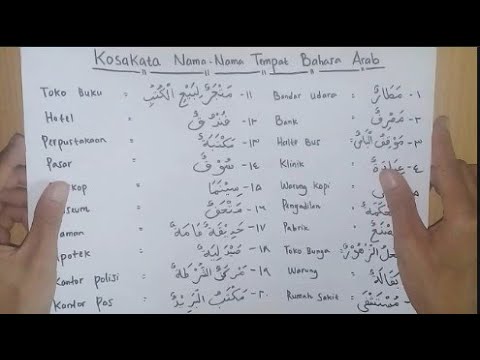 Kosakata Nama-Nama Tempat Bahasa Arab
Toko Buku = ١١- مَتْجَرٌ لِبَيْعِ الْكُتُبِ Bandar udara = ١- مَطَارٌ
Hotel = ١٢- فُنْدُقٌ Bank = ٢- مَصْرِفٌ
Perpustakaan = ١٣- مَكْتَبَةٌ Halte Bus = ٣- مَوْقِفُ
Pasar = ١٤- سُوْقٌ Klinik = ٤- عِيَادَةٌ
kop = ١٥- سِيْنَمَا Warung kopi =
useum = ١٦- مَتْحَفٌ Pengadilan = حْكَمَةٌ
aman = ١٧- حَدِيْقَةٌ عَامَةٌ Pabrik = صْنَعٌ
potek = ١٨- صَيْدَلِيَةٌ Toko Bunga = الزُّهُوْرِ
Kantor polisi = ١٩- مَرْكَزُ الشُّرْطَةِ Warung = بَقَالَةٌ
Kantor pos = ٢٠- مَكْتَبُ الْبَرِيْدِ Rumah Sakit = مُسْتَشْفَى